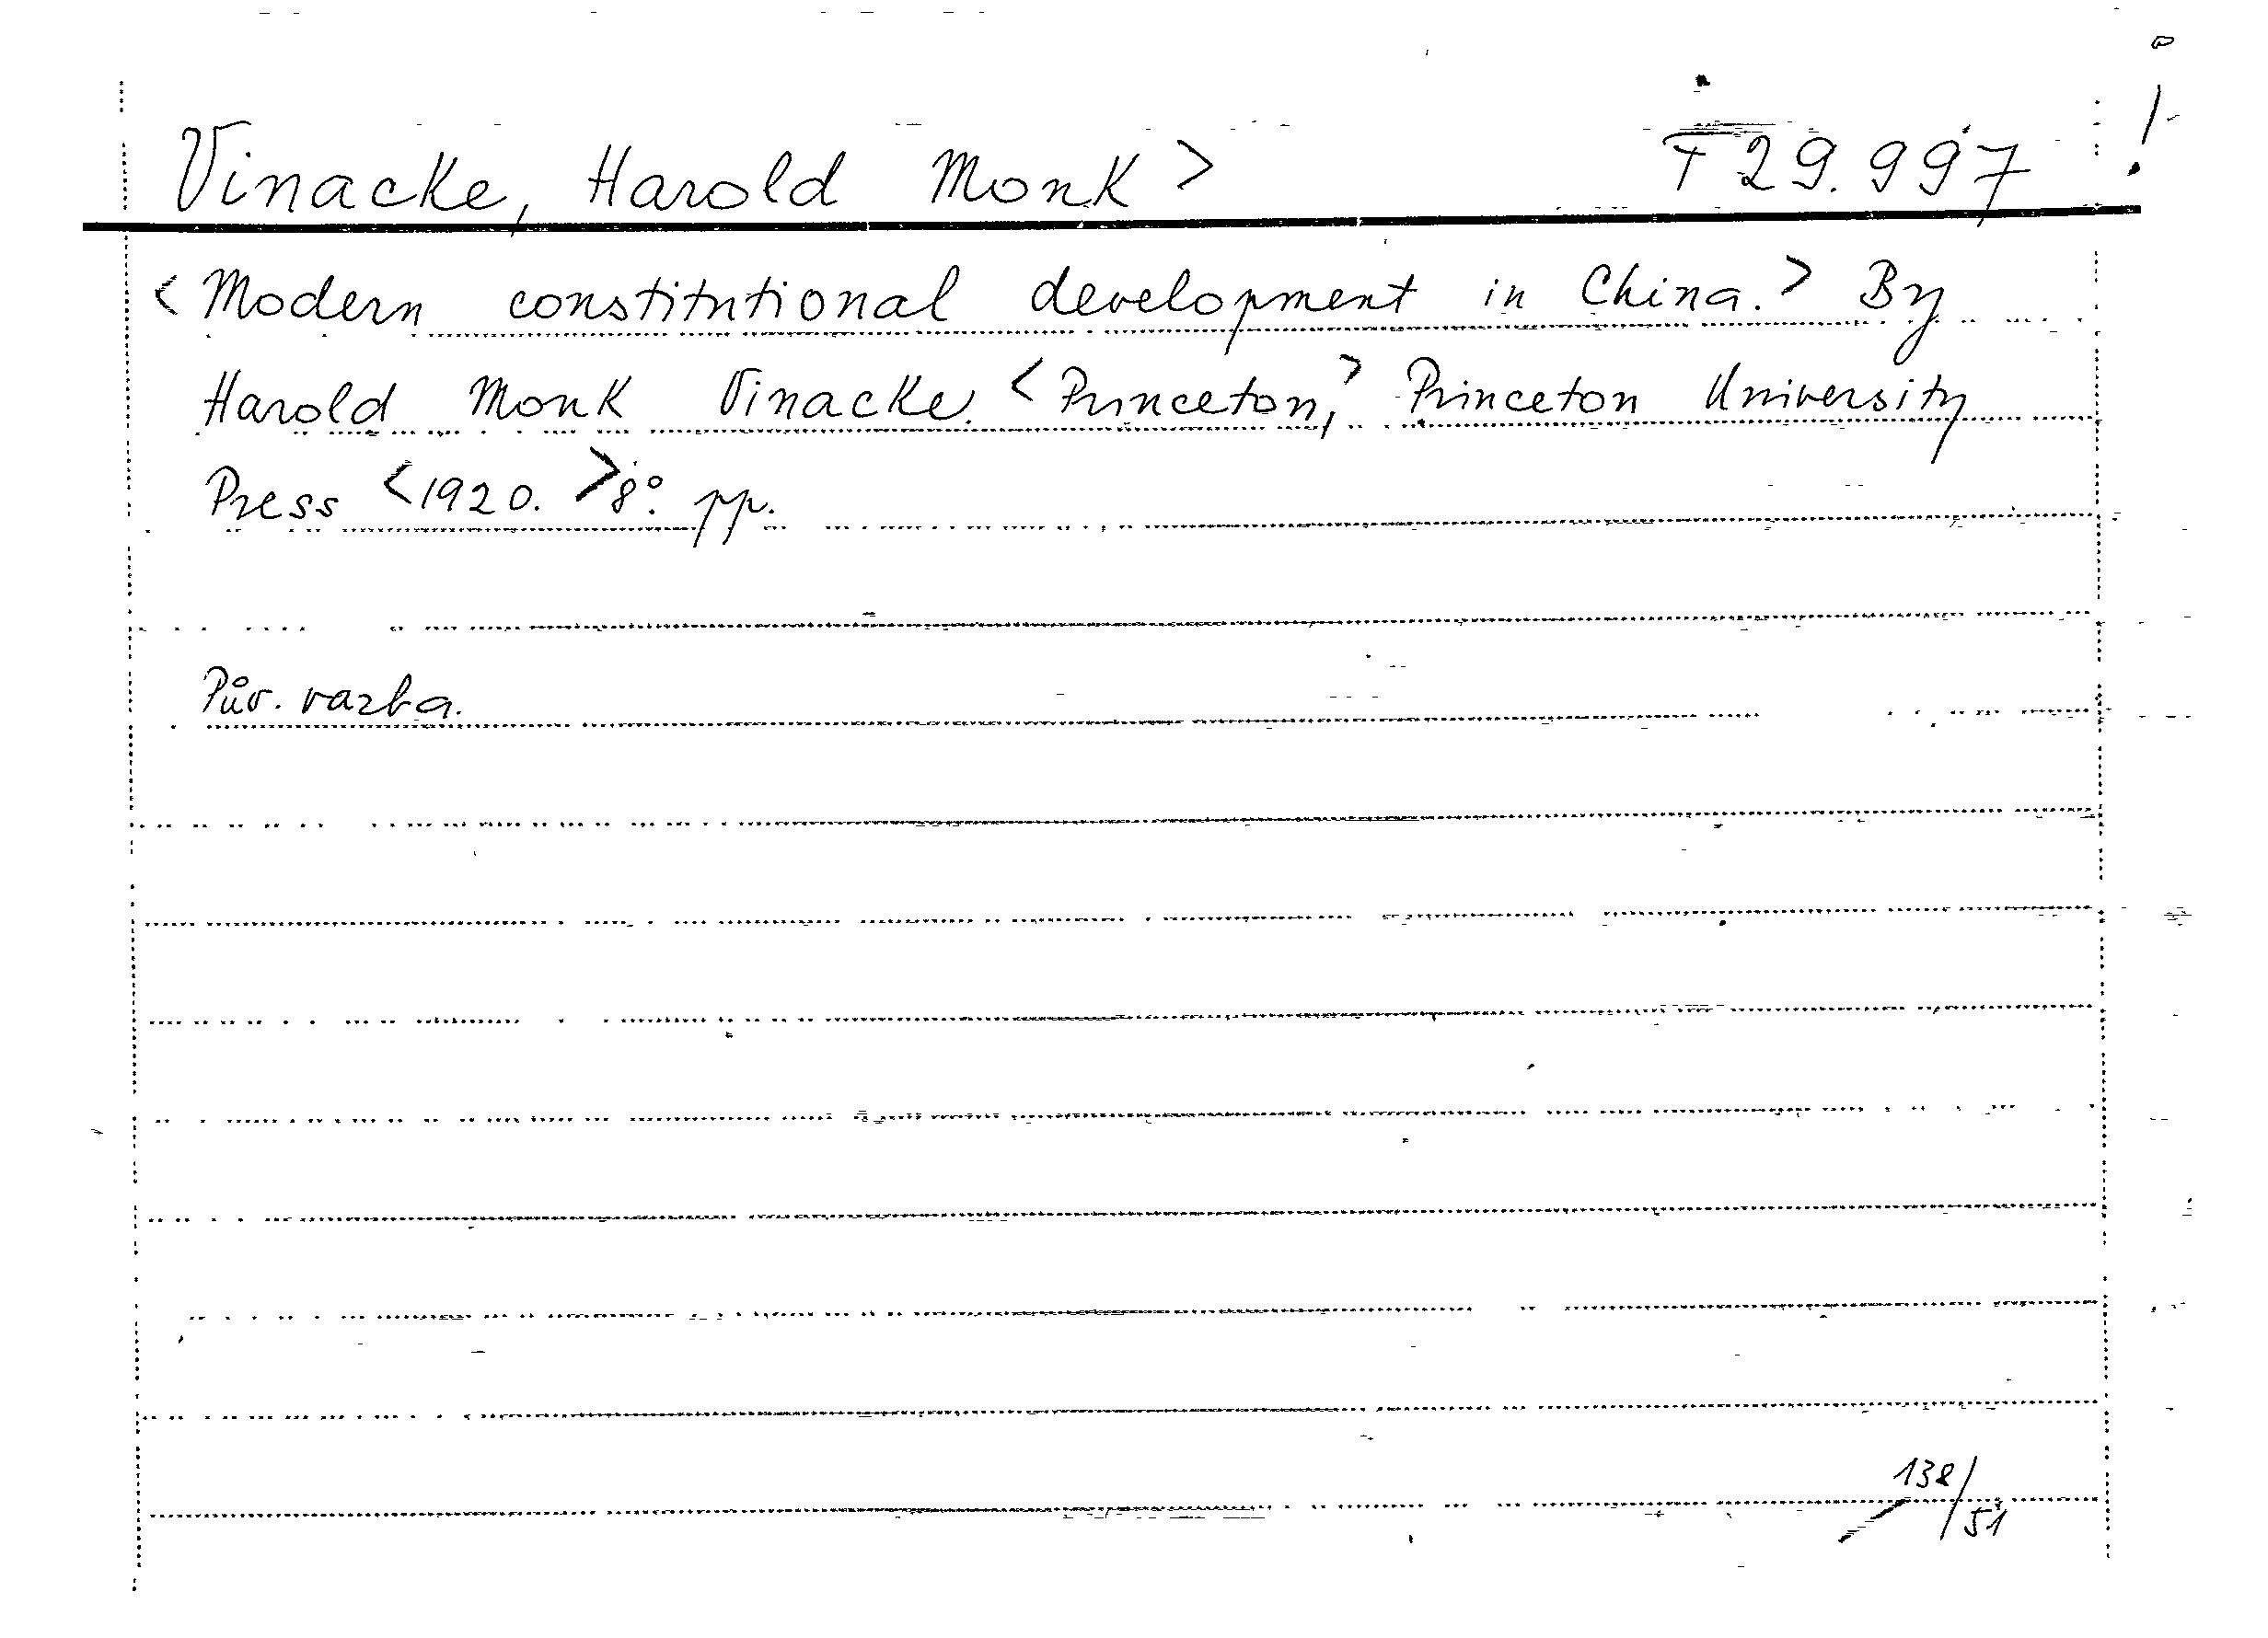 Vinacke, Harold Monk > F 29.997 !
<Modern constitutional development in China.> By
Harold Monk Vinacke. <Princeton,> Princeton University
Press <1920.> 8°. pp.
Pův. vazba.
138/51